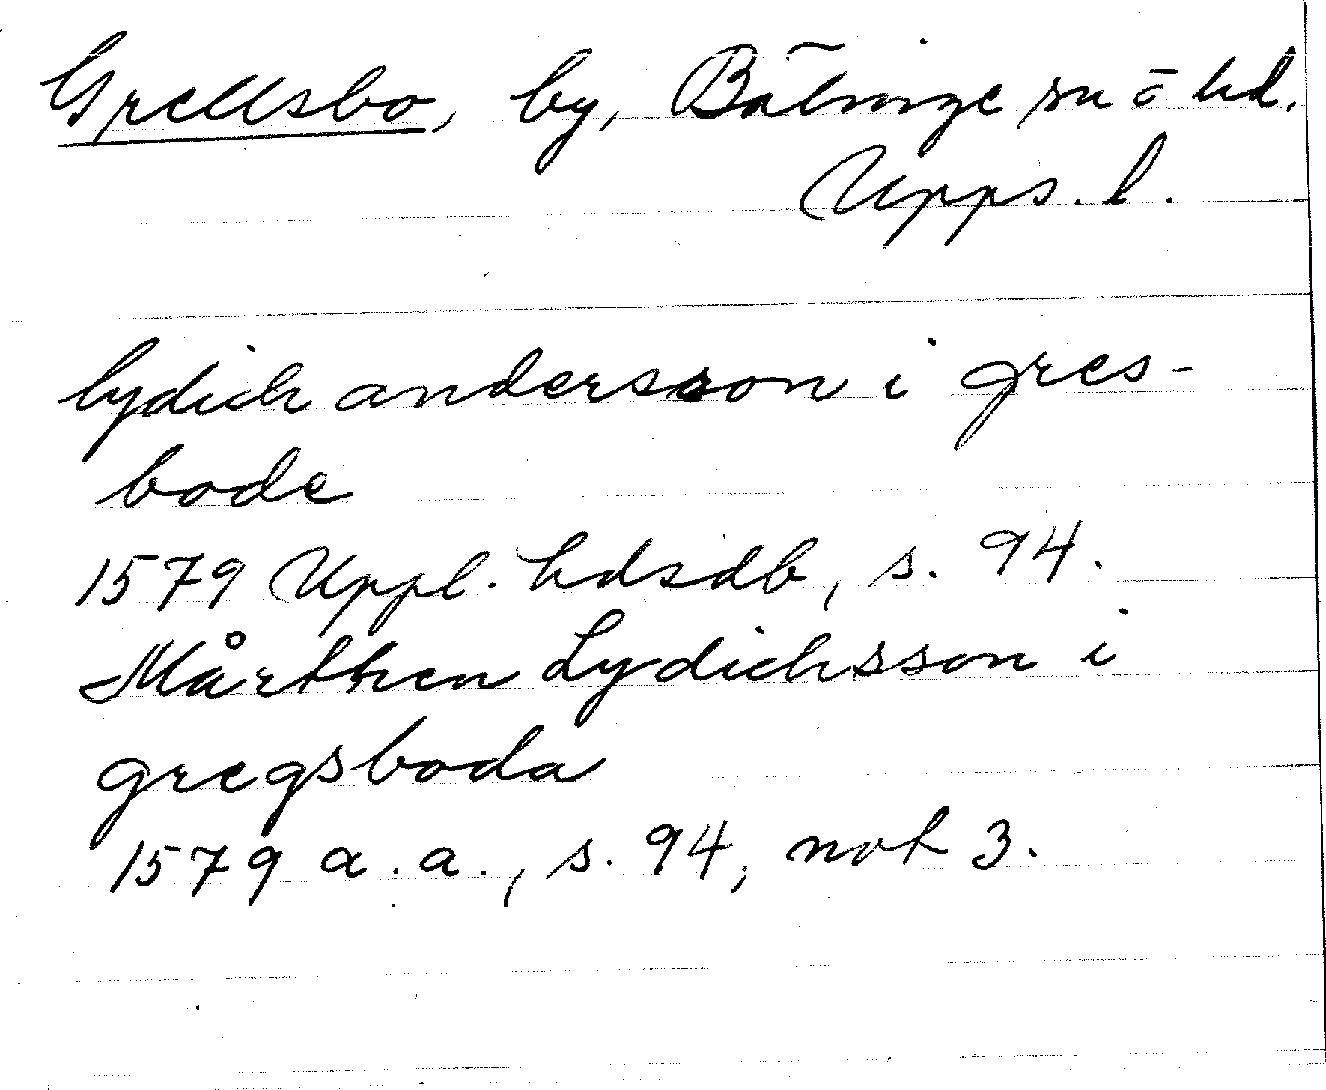 Grellsbo, by, Bälinge sn o hd.
Upps. l.
lydich andersson i gres-
bode
1579 Uppl. hdsdb, s. 94.
Mårthen Lydichsson i
gregsboda
1579 a.a., s. 94, not 3.